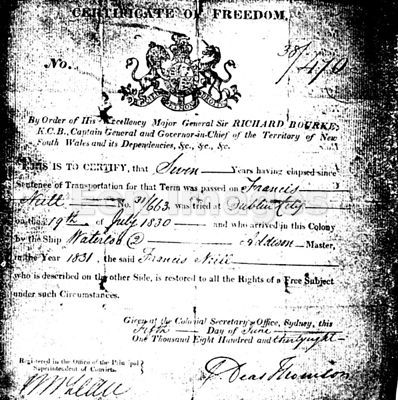 CERTIFICATE OF FREEDOM.
No. 38/470
By Order of His Excellency Major General Sir RICHARD BOURKE,
K.C.B., Captain General and Governor-in-Chief of the Territory of New
South Wales and its Dependencies, &c., &c., &c.
THIS IS TO CERTIFY, that Seven Years having elapsed since
Sentence of Transportation for that Term was passed on Francis
Neill No. 31/663 was tried at Dublin City
on the 19th of July 1830 and who arrived in this Colony
by the Ship Waterloo (2) Addison Master,
in the Year 1831, the said Francis Neill
who is described on the other Side, is restored to all the Rights of a Free Subject
under such Circumstances.
Given at the Colonial Secretary's Office, Sydney, this
Fifth Day of June
One Thousand Eight Hundred and thirty eight
Registered in the Office of the Principal
Superintendent of Convicts.
E. Deas Thomson